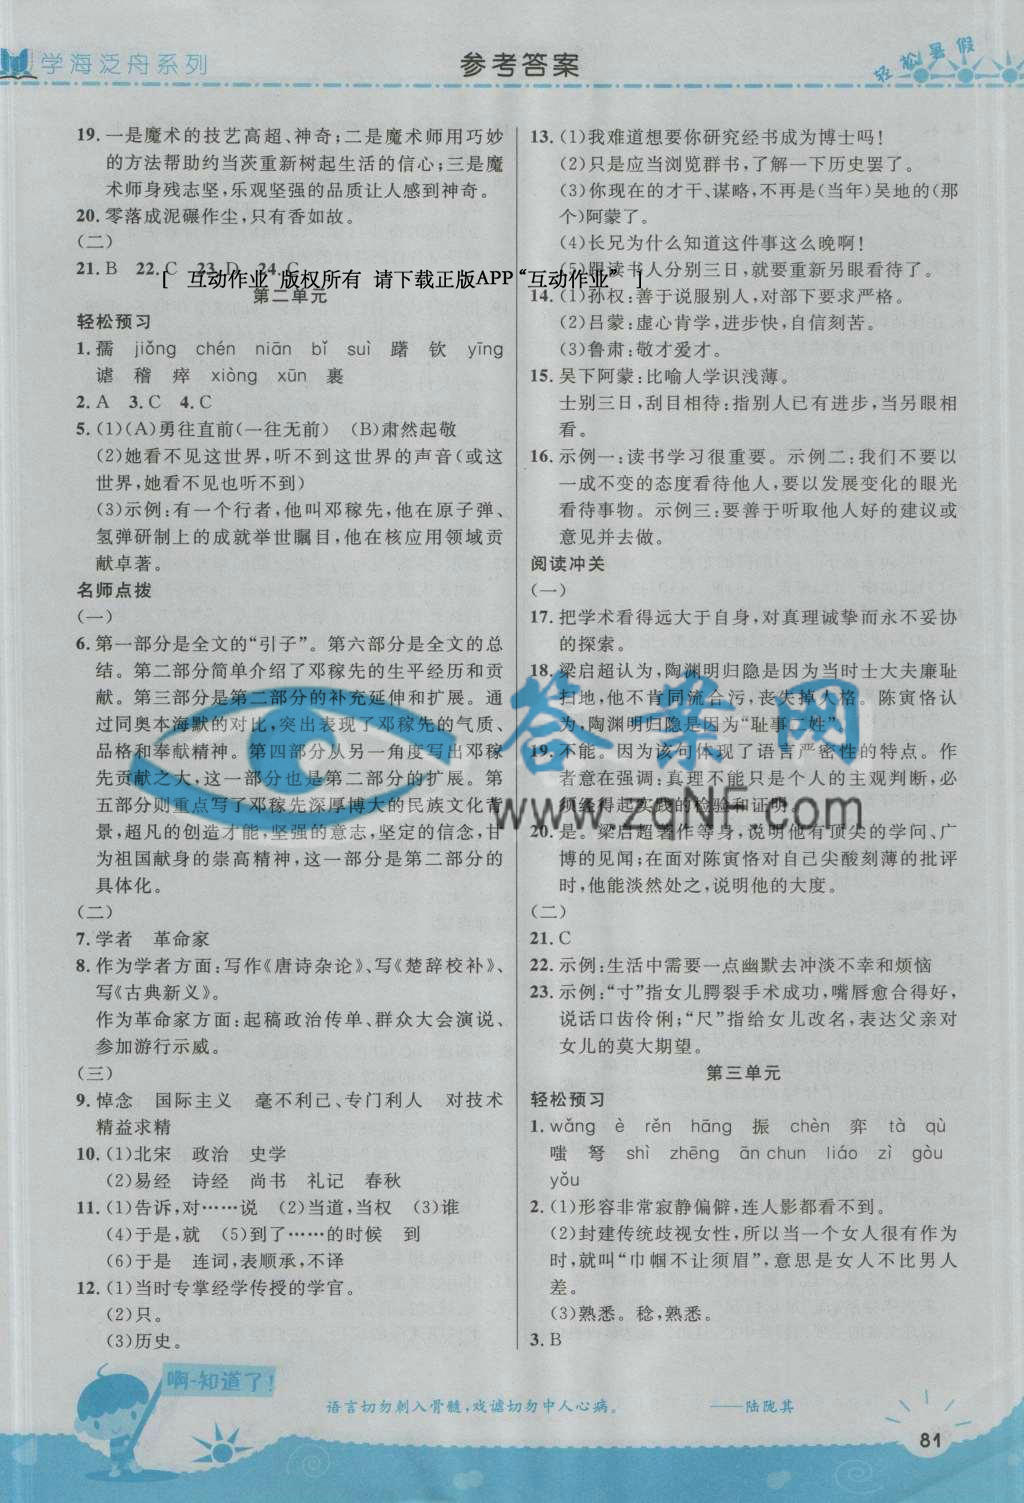 学海泛舟系列
参考答案
轻松暑假
19. 一是魔术的技艺高超、神奇;二是魔术师用巧妙
的方法帮助约当茨重新树起生活的信心;三是魔
术师身残志坚,乐观坚强的品质让人感到神奇。
20. 零落成泥碾作尘,只有香如故。
(二)
21. B 22. C 23. D 24. C
[ 互动作业" 版权所有 请下载正版APP“互动作业” ]
第二单元
轻松预习
1. 孺 jiǒng chén niān bǐ suì 躇 钦 yīng
谑 稽 瘁 xiòng xūn 裹
2. A 3. C 4. C
5. (1)(A)勇往直前(一往无前) (B)肃然起敬
(2)她看不见这世界,听不到这世界的声音(或这
世界,她看不见也听不到)
(3)示例:有一个行者,他叫邓稼先,他在原子弹、
氢弹研制上的成就举世瞩目,他在核应用领域贡
献卓著。
名师点拨
(一)
6. 第一部分是全文的“引子”。第六部分是全文的总
结。第二部分简单介绍了邓稼先的生平经历和贡
献。第三部分是第二部分的补充延伸和扩展。通
过同奥本海默的对比,突出表现了邓稼先的气质、
品格和奉献精神。第四部分从另一角度写出邓稼
先贡献之大,这一部分也是第二部分的扩展。第
五部分则重点写了邓稼先深厚博大的民族文化背
景,超凡的创造才能,坚强的意志,坚定的信念,甘
为祖国献身的崇高精神,这一部分是第二部分的
具体化。
(二)
7. 学者 革命家
8. 作为学者方面:写作《唐诗杂论》、写《楚辞校补》、
写《古典新义》。
作为革命家方面:起稿政治传单、群众大会演说、
参加游行示威。
(三)
9. 悼念 国际主义 毫不利己、专门利人 对技术
精益求精
10. (1)北宋 政治 史学
(2)易经 诗经 尚书 礼记 春秋
11. (1)告诉,对……说 (2)当道,当权 (3)谁
(4)于是,就 (5)到了……的时候 到
(6)于是 连词,表顺承,不译
12. (1)当时专掌经学传授的学官。
(2)只。
(3)历史。
13. (1)我难道想要你研究经书成为博士吗!
(2)只是应当浏览群书,了解一下历史罢了。
(3)你现在的才干、谋略,不再是(当年)吴地的(那
个)阿蒙了。
(4)长兄为什么知道这件事这么晚啊!
(5)跟读书人分别三日,就要重新另眼看待了。
14. (1)孙权:善于说服别人,对部下要求严格。
(2)吕蒙:虚心肯学,进步快,自信刻苦。
(3)鲁肃:敬才爱才。
15. 吴下阿蒙:比喻人学识浅薄。
士别三日,刮目相待:指别人已有进步,当另眼相
看。
16. 示例一:读书学习很重要。示例二:我们不要以
一成不变的态度看待他人,要以发展变化的眼光
看待事物。示例三:要善于听取他人好的建议或
意见并去做。
阅读冲关
(一)
17. 把学术看得远大于自身,对真理诚挚而永不妥协
的探索。
18. 梁启超认为,陶渊明归隐是因为当时士大夫廉耻
扫地,他不肯同流合污,丧失掉人格。陈寅恪认
为,陶渊明归隐是因为“耻事二姓”。
19. 不能。因为该句体现了语言严密性的特点。作
者意在强调:真理不能只是个人的主观判断,必
须经得起实践的检验和证明。
20. 是。梁启超著作等身,说明他有顶尖的学问、广
博的见闻;在面对陈寅恪对自己尖酸刻薄的批评
时,他能淡然处之,说明他的大度。
(二)
21. C
22. 示例:生活中需要一点幽默去冲淡不幸和烦恼
23. 示例:“寸”指女儿腭裂手术成功,嘴唇愈合得好,
说话口齿伶俐;“尺”指给女儿改名,表达父亲对
女儿的莫大期望。
第三单元
轻松预习
1. wǎng è rěn hāng 振 chèn 弈 tà qù
嗤 弩 shì zhēng ān chun liáo zì gòu
yǒu
2. (1)形容非常寂静偏僻,连人影都看不到。
(2)封建传统歧视女性,所以当一个女人很有作为
时,就叫“巾帼不让须眉”,意思是女人不比男人
差。
(3)熟悉。稔,熟悉。
3. B
答案网
www.zqNF.com
啊-知道了!
语言切勿刺入骨髓,戏谑切勿中人心病。 ——陆陇其
81